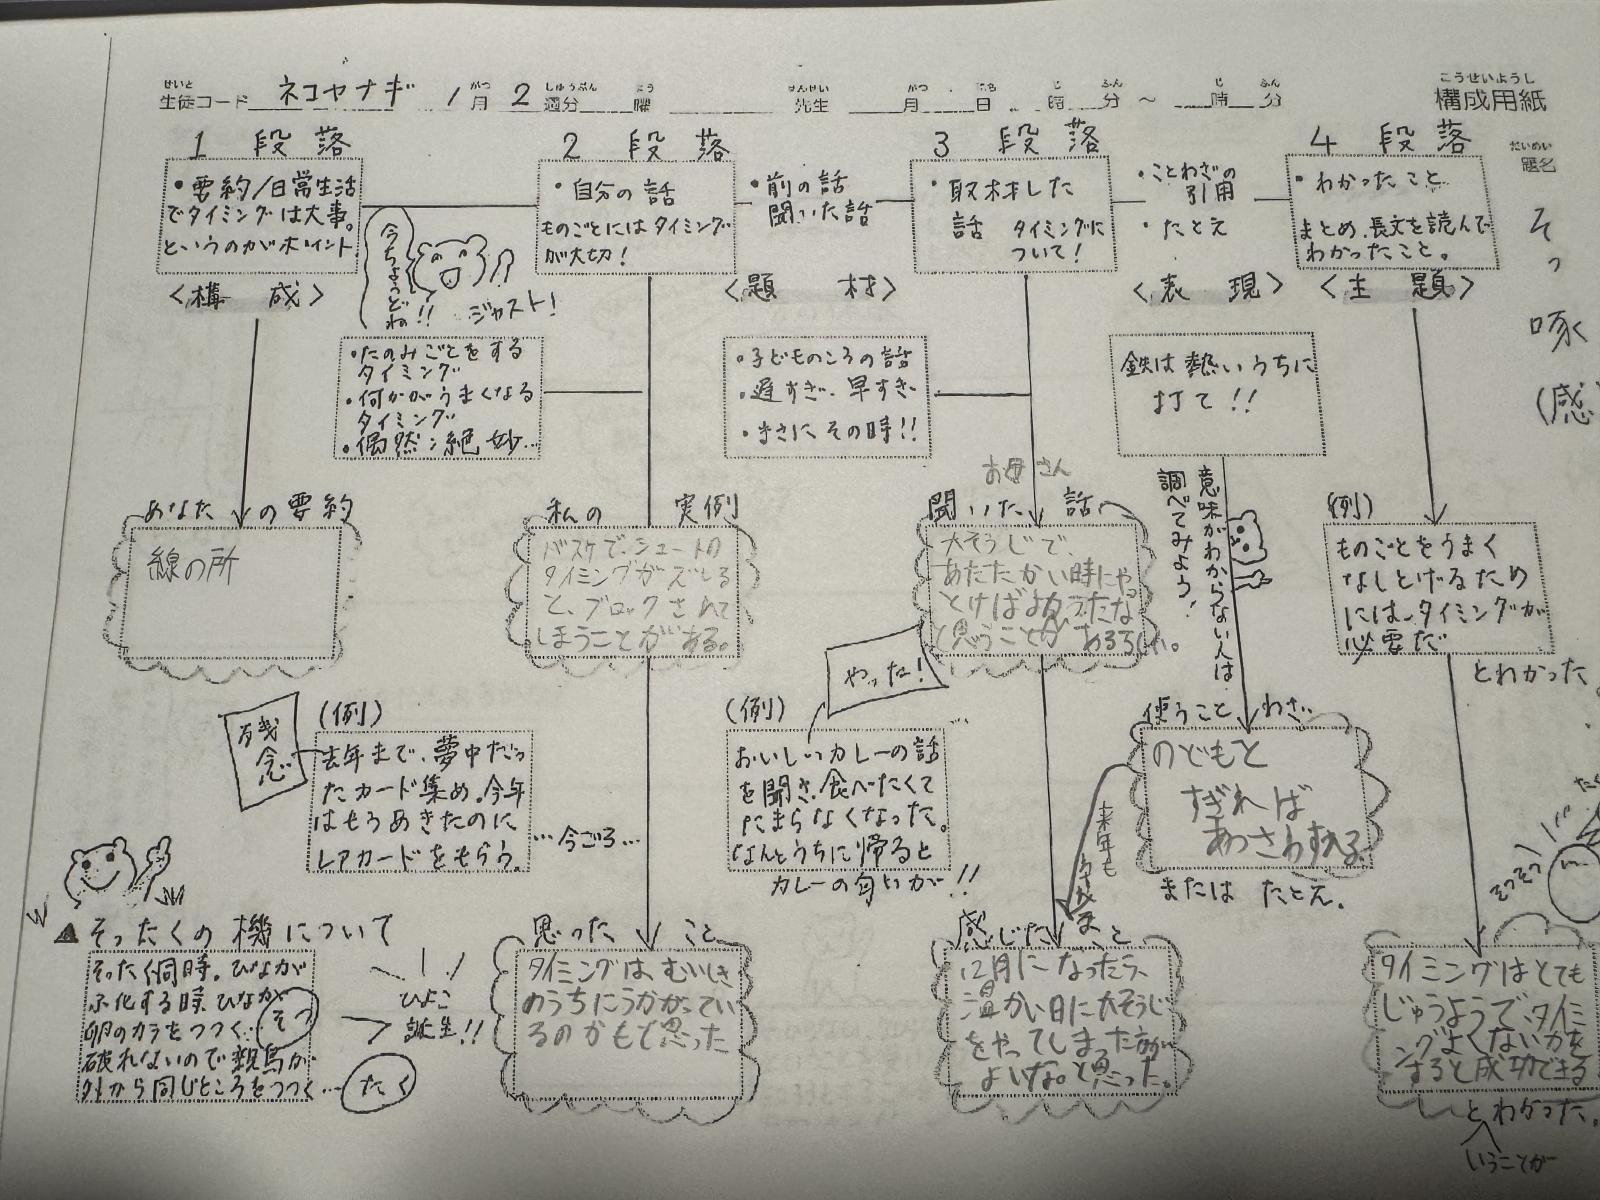 せいと がつ しゅうぶん よう せんせい がつ にち じ ふん じ ふん
生徒コード ネコヤナギ 1月 2週分 曜 先生 月 日 時 分 ～ 時 分
こうせいようし
構成用紙
だいめい
題名
そ
っ
啄
く
(感
1 段落
・要約/日常生活
でタイミングは大事。
というのがポイント!
<構 成>
今ちょうどね!!
ジャスト!
2 段落
・自分の話
ものごとにはタイミング
が大切!
・前の話
聞いた話
<題 材>
3 段落
・取材した
話 タイミングに
ついて!
・ことわざの
引用
・たとえ
<表 現>
4 段落
・わかったこと
まとめ、長文を読んで
わかったこと。
<主 題>
・たのみごとをする
タイミング
・何かがうまくなる
タイミング
・偶然:絶妙…
・子どものころの話
・遅すぎ・早すぎ
・まさにその時!!
鉄は熱いうちに
打て!!
意味がわからない人は
調べてみよう!
あなたの要約
線の所
私の 実例
バスケで、シュートの
タイミングがズレる
と、ブロックされて
しまうことがある。
お母さん
聞いた 話
大そうじで、
あたたかい時にや
っとけばよかったな
と思うことがあるらしい。
(例)
ものごとをうまく
なしとげるため
には、タイミングが
必要だ
とわかった。
残念
(例)
去年まで、夢中だっ
たカード集め。今年
はもうあきたのに
レアカードをもらう。
…今ごろ…
やった!
(例)
おいしいカレーの話
を聞き、食べたくて
たまらなくなった。
なんとうちに帰ると
カレーの匂いが!!
使うことわざ
のどもと
すぎれば
あつさわすれる
または たとえ。
来年も
▲そったくの機について
そったく同時。ひなが
ふ化する時、ひなが
卵のカラをつつく…そつ
破れないので親鳥が
外から同じところをつつく…たく
ひよこ
誕生!!
思った こと
タイミングはむいしき
のうちにうかがってい
るのかもで思った
感じたこと
12月になったら、
温かい日に大そうじ
をやってしまった方が
よいな。と思った。
そつそつ
タイミングはとても
じゅうようで、タイミ
ングよくないかを
すると成功できる
とわかった。
いうことが